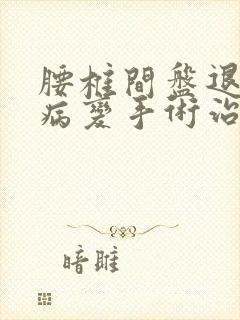 腰椎間盤退
病變手術治
暗雎